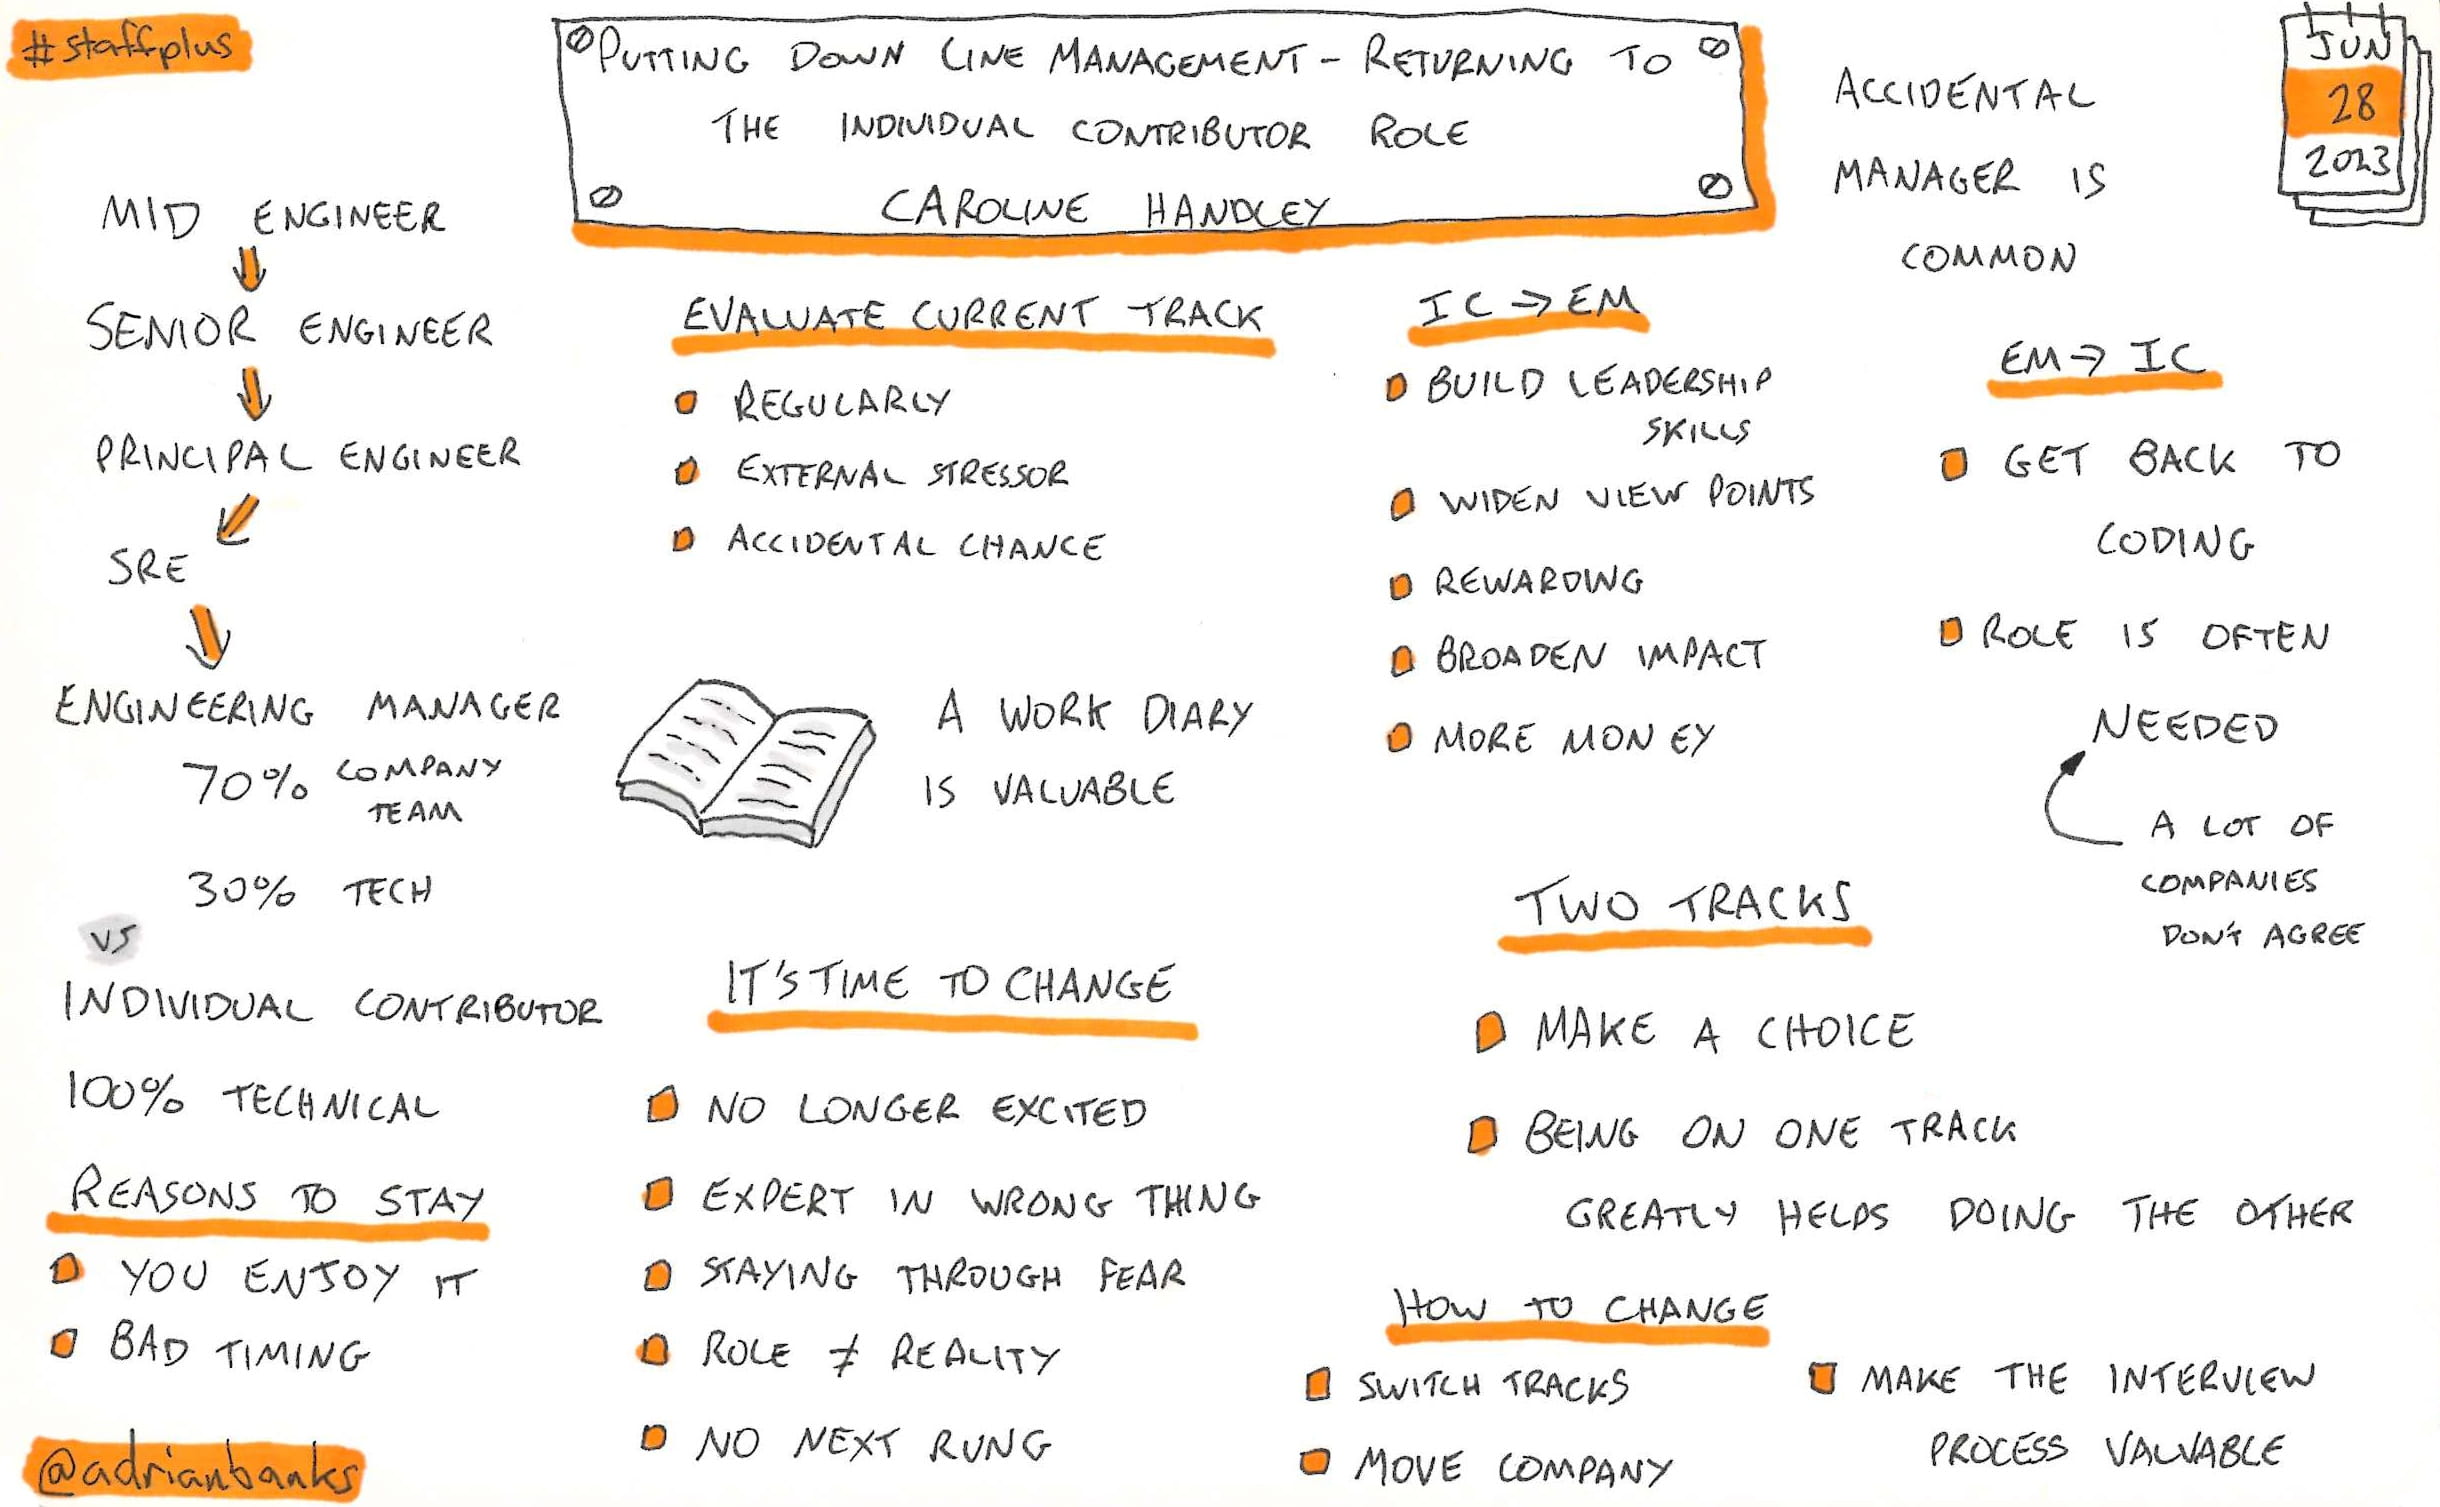 #staffplus
PUTTING DOWN LINE MANAGEMENT - RETURNING TO
THE INDIVIDUAL CONTRIBUTOR ROLE
CAROLINE HANDLEY
JUN
28
2023
ACCIDENTAL
MANAGER IS
COMMON
MID ENGINEER
SENIOR ENGINEER
PRINCIPAL ENGINEER
SRE
ENGINEERING MANAGER
70% COMPANY
TEAM
30% TECH
VS
INDIVIDUAL CONTRIBUTOR
100% TECHNICAL
REASONS TO STAY
YOU ENJOY IT
BAD TIMING
@adrianbanks
EVALUATE CURRENT TRACK
REGULARLY
EXTERNAL STRESSOR
ACCIDENTAL CHANCE
A WORK DIARY
IS VALUABLE
IT'S TIME TO CHANGE
NO LONGER EXCITED
EXPERT IN WRONG THING
STAYING THROUGH FEAR
ROLE ≠ REALITY
NO NEXT RUNG
IC → EM
BUILD LEADERSHIP
SKILLS
WIDEN VIEW POINTS
REWARDING
BROADEN IMPACT
MORE MONEY
EM → IC
GET BACK TO
CODING
ROLE IS OFTEN
NEEDED
A LOT OF
COMPANIES
DON'T AGREE
TWO TRACKS
MAKE A CHOICE
BEING ON ONE TRACK
GREATLY HELPS DOING THE OTHER
HOW TO CHANGE
SWITCH TRACKS
MOVE COMPANY
MAKE THE INTERVIEW
PROCESS VALUABLE